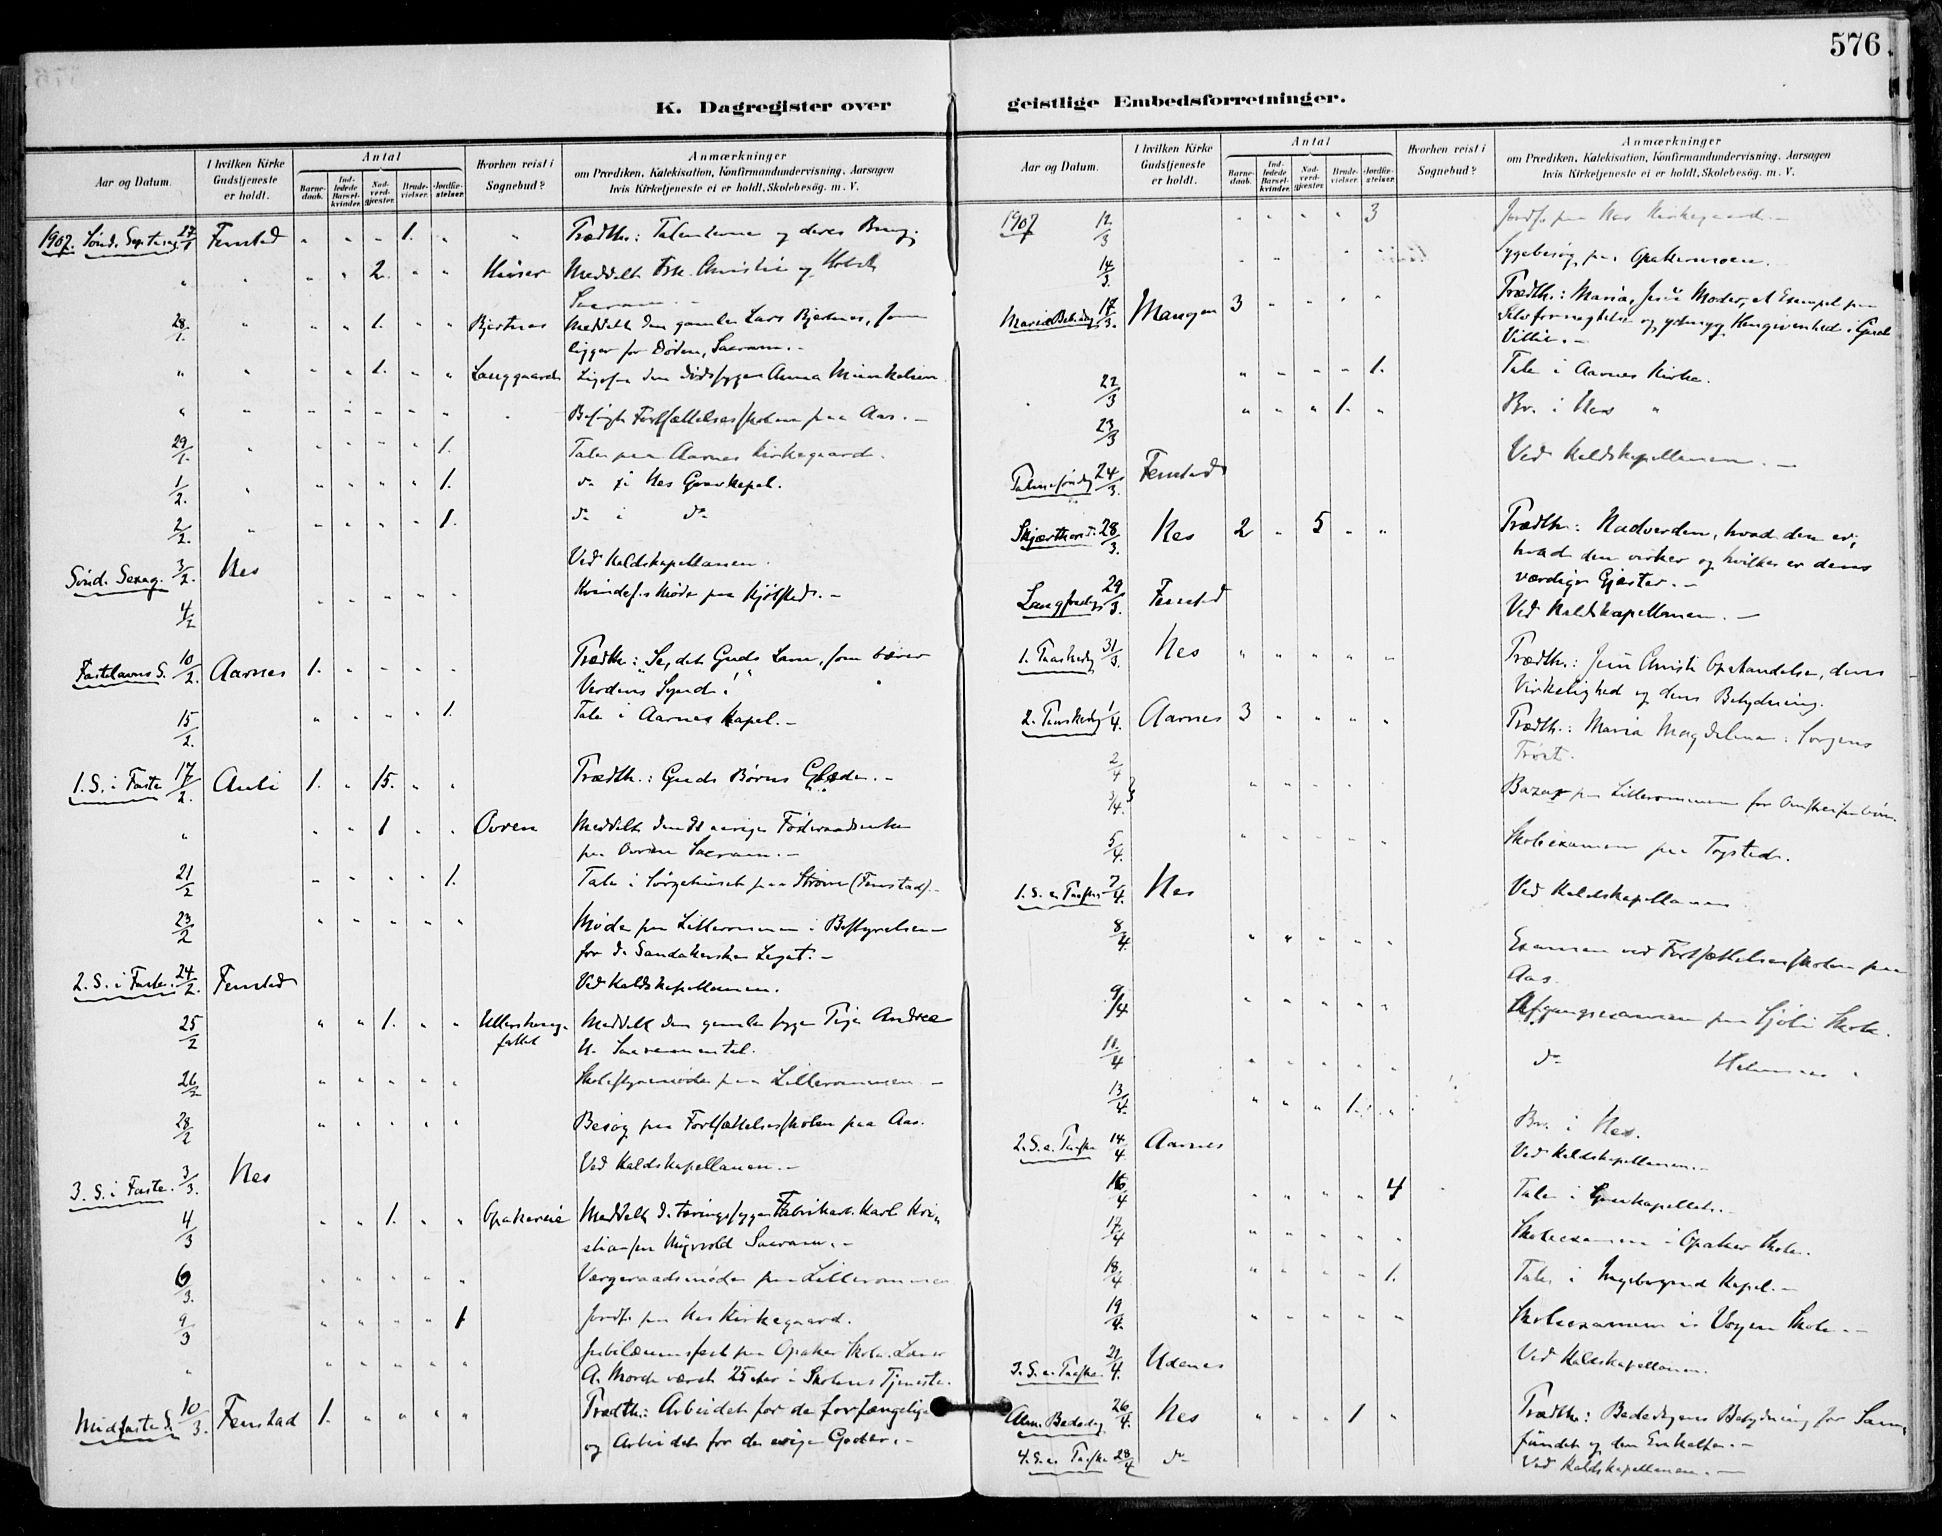 576
K. Dagregister over geistlige Embedsforretninger.
Aar og Datum.
I hvilken Kirke Gudstjeneste er holdt.
Antal
Barnedaab.
Indledede Barselkvinder.
Nadverdgjester.
Brudevielser.
Jordfæstelser.
Hvorhen reist i Sognebud?
Anmærkninger
om Prædiken, Katekisation, Konfirmandundervisning, Aarsagen
hvis Kirketjeneste ei er holdt, Skolebesøg, m. V.
1907. Sønd. Septuag. 27/1 Fenstad " " " 1. " " Prædth.: Talenterne og deres Brug.
" " " " 2. " " Huser Meddelt
Sacram. -
28/1. " " " 1. " " Bjertnes Meddelt den gamle Lars Bjertnes, som
ligger for Døden, Sacram. -
" " " " 1. " " Langgaard Ligesaa den dødssyge Anna Mikkelsen.
" " " " " " " " Besøgte Fortsættelsesskolen paa Aas. -
29/1. " " " " " 1. Tale paa Aarnes Kirkegaard.
1/2. " " " " " 1. do i Nes Gravkapel.
2/2. " " " " " 1. do i do
Sønd. Sexag. 3/2. Nes Ved Kaldskapellanen.
4/2 " " " " " paa Kjølstad. -
Fastelavns S. 10/2. Aarnes 1. " " " " Prædth.: "Se, det Guds Lam, som bærer
Verdens Synd!"
15/2. " " " " 1. Tale i Aarnes Kapel. -
1. S. i Faste 17/2. Auli 1. " 15. " " Prædth.: Guds Børns Glæde. -
" " " 1 " " Ovren Meddelt den
paa Ovren Sacram. -
21/2 " " " " 1. Tale i Sørgehuset paa Strøm (Fenstad). -
23/2 " " " " " Møde paa Lillerommen i Bestyrelsen
for de Sandakerske Legat. -
2. S. i Faste. 24/2. Fenstad Ved Kaldskapellanen.
25/2 " " 1. " " Meddelt den gamle syge Pige Andrea
H. Sacramentet.
26/2 " " " " " Skolestyremøde paa Lillerommen -
28/2 " " " " " Besøg paa Fortsættelsesskolen paa Aas.
3. S. i Faste. 3/3. Nes Ved Kaldskapellanen. -
4/3 " " 1. " " Opakereie Meddelt d. tæringssyge Fabrikarb. Karl Kri-
stiansen Myrvold Sacram. -
6/3. " " " " " Værgeraadsmøde paa Lillerommen
9/3 " " " " 1 Jordf. paa Nes Kirkegaard.
" " " " " " Jubilæumsfest paa Opaker Skole. Lærer
A. Morch været 25 Aar i Skolens Tjeneste.
Midfaste S. 10/3. Fenstad 1. " " " " Prædth.: Arbeidet for de forfængelige
og Arbeidet for de evige Goder. -
Aar og Datum.
I hvilken Kirke Gudstjeneste er holdt.
Antal
Barnedaab.
Indledede Barselkvinder.
Nadverdgjester.
Brudevielser.
Jordfæstelser.
Hvorhen reist i Sognebud?
Anmærkninger
om Prædiken, Katekisation, Konfirmandundervisning, Aarsagen
hvis Kirketjeneste ei er holdt, Skolebesøg, m. V.
1907 12/3 " " " " 3 Jordf. paa Nes Kirkegaard. -
14/3. " " " " " Sygebesøg paa Opakermoen.
Mariæ Beb.dag 17/3. Mangen 3 " " " " Prædth.: Maria, Jesu Moder, et Exempel paa
Selvfornegtelse og ydmyg Hengivenhed i Guds
Villie. -
22/3 " " " " 1. Tale i Aarnes Kirke.
23/3 " " " 1. " Br. i Nes "
Palmesøndag 24/3. Fenstad Ved Kaldskapellanen. -
Skjærthorsd. 28/3. Nes 2 " 5 " " Prædth.: Nadverden, hvad den er,
hvad den virker og hvilke er dens
værdige Gjester. -
Langfredag 29/3. Fenstad Ved Kaldskapellanen. -
1. Paaskedag 31/3. Nes " " " " " Prædth.: Jesu Christi Opstandelse, dens
Virkelighed og dens Betydning.
2. Paaskedag 1/4. Aarnes 3 " " " " Prædth.: Maria Magdalena: Sorgens
Trøst.
2/4 3/4. } " " " " Bazar paa Lillerommen for
5/4. " " " " " Skoleexamen paa Togstad.
1. S. e. Paaske 7/4. Nes Ved Kaldskapellanen
8/4. " " " " " Examen ved Fortsættelsesskolen paa
Aas.
9/4 " " " " " Afgangsexamen paa Skole.
11/4 " " " " " do
13/4. " " " 1. " Br. i Nes.
2. S. e. Paaske 14/4 Aarnes Ved Kaldskapellanen. -
16/4 " " " " 4 Tale i Gravkapellet. -
17/4 " " " " " Skoleexamen i Opaker Skole.
18/4 " " " " 1. Tale i Kapel. -
19/4. " " " " " Skoleexamen i Skole. -
3. S. e. Paaske. 21/4. Udenes Ved Kaldskapellanen.
Alm. Bededag 26/4. Nes " " " 1 " Prædth.: Bededagens Betydning for Sam-
fundet og den Enkelte. -
4. S. e. Paaske 28/4 do Ved Kaldskapellanen. -